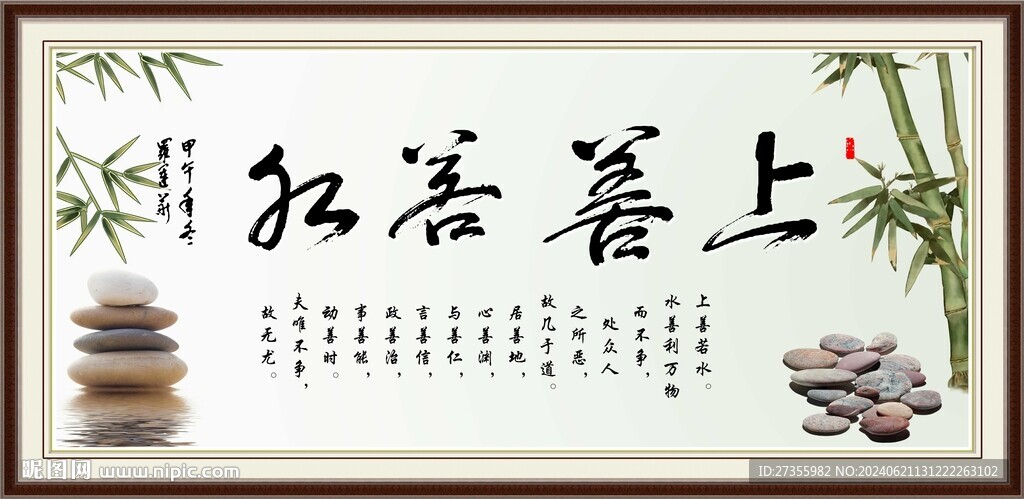 上善若水
上善若水。
水善利万物
而不争，
处众人
之所恶，
故几于道。
居善地，
心善渊，
与善仁，
言善信，
政善治，
事善能，
动善时。
夫唯不争，
故无尤。
甲午年冬
昵图网 www.nipic.com
ID:27355982 NO:20240621131222263102